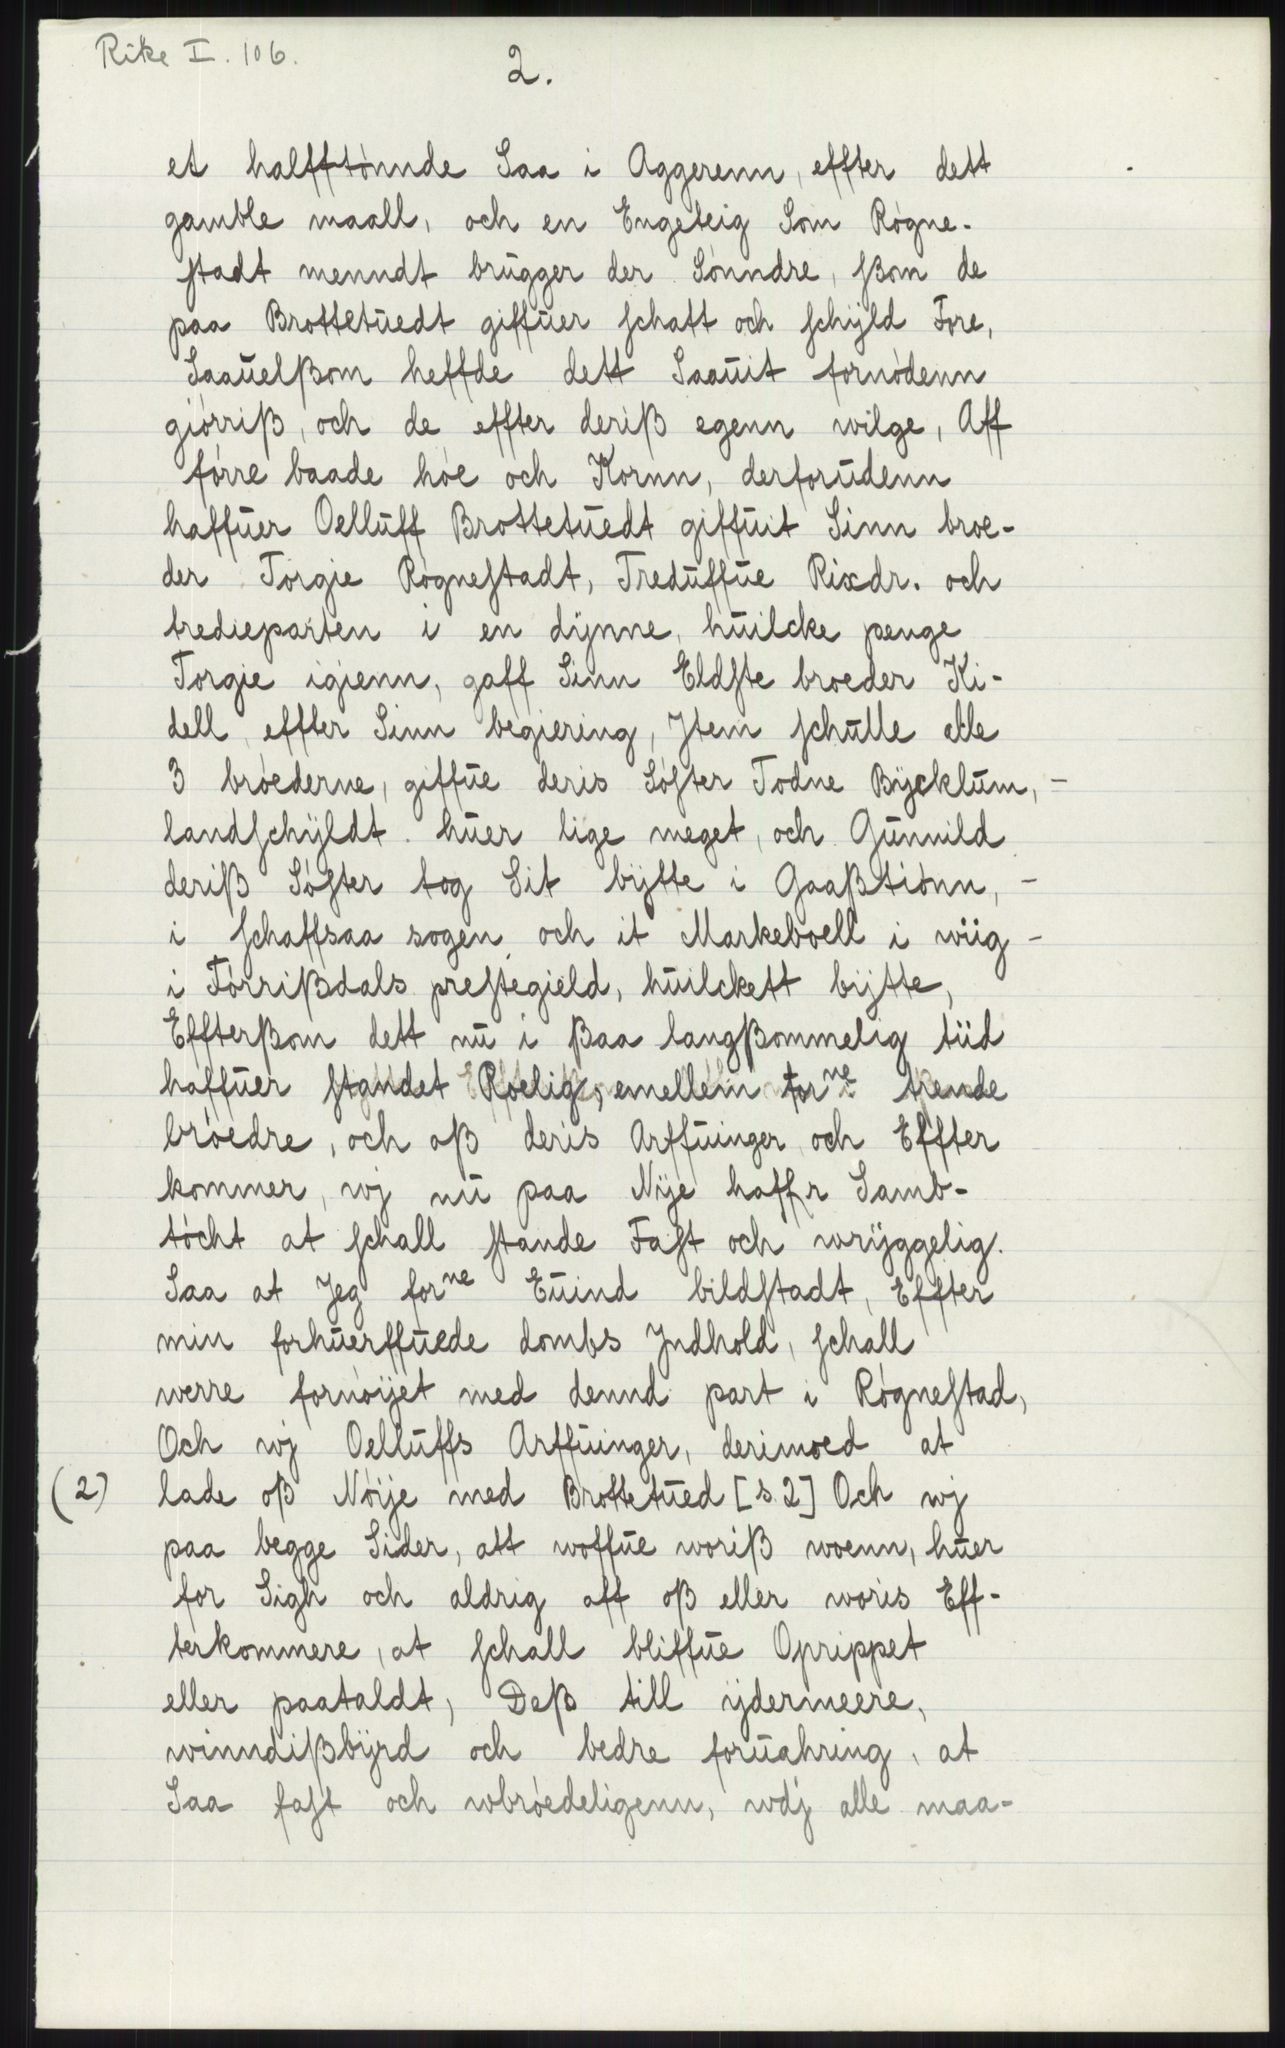 Rike I. 106.
2.
et halfftónnde Saa i Aggerenn, effter dett
gamble maall, och en Engeteig Som Rógne-
stadt menndt brúgger der Sónndre, ßom de
paa Brottetúedt giffúer schatt och schÿld Fore,
Saaúelßom heffde dett Saaúit fornódenn
giórriß, och de effter deriß egenn wilge, Aff
fórre baade hóe och Kornn, derforúdenn
haffúer Oellúff Brottetúedt giffúit Sinn broe-
der Torgie Rógnestadt, Tredúffúe Rixdr. och
tredieparten i en dÿnne, húilcke penge
Torgie igienn, gaff Sinn Eldste broeder Ki-
dell, effter Sinn begiering, Jtem schúlle alle
3 bróederne, giffúe deris Sóster Todne Bÿcklúm, -
landschÿldt. húer lige meget, och Gúnnild
deriß Sóster tog Sit bÿtte i Gaaßtiónn, -
i schaffsaa sogen och it Markeboell i wiig -
i Tórrißdals prestegield, húilckett bÿtte,
Effterßom dett nú i ßaa langßommelig tiid
haffúer standet Roelig, emellem forne trende
bróedre, och oß deris Arffúinger och Effter
kommer, wj nú paa Nÿe haffr Samb-
tócht at schall stande Fast och wrÿggelig.
Saa at Jeg forne Eúind bildstadt, Effter
min forhúerffúede dombs Jndhold, schall
werre fornóÿet med dennd part i Rógnestad,
Och wj Oellúffs Arffúinger, derimoed at
(2) lade oß Nóÿe med Brottetúed [s 2] Och wj
paa begge Sider, att woffúe woriß woenn, húer
for Sigh och aldrig aff oß eller woris Eff-
terkommere, at schall bliffúe Oprippet
eller paataldt, Deß till ÿdermeere,
winndißbÿrd och bedre forúahring, at
Saa fast och wbróedeligenn, wdj alle maa-